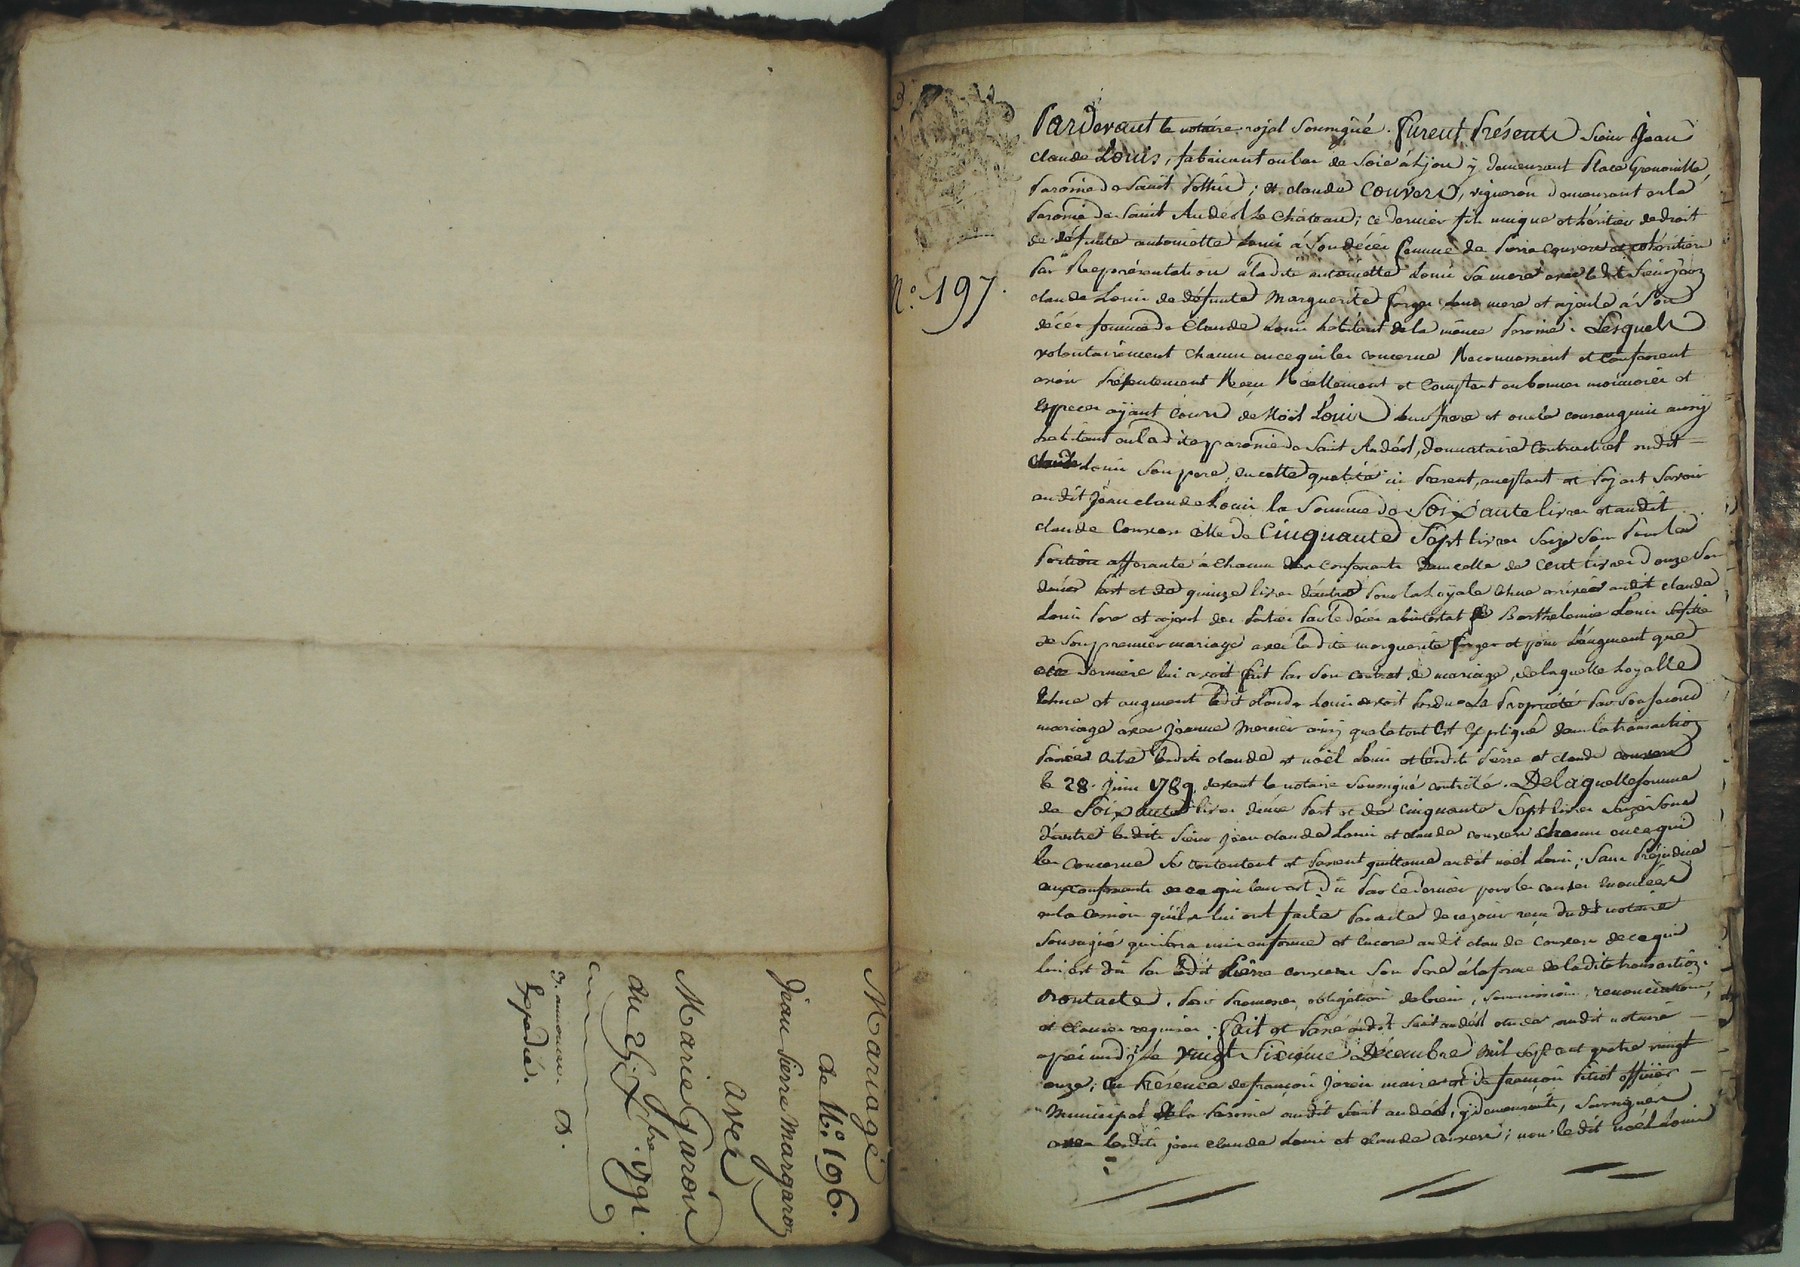 Mariage
de N.o 196.
Jean Pierre Margaron
avec
Marie Garon
du 25. Xbre. 1791.
Expedié.
N.o 197.
Pardevant le notaire royal soussigné. furent Présents sieur Jean
claude Louis, fabricant en bas de soie à Lyon y demeurant Place Grenouille,
Paroisse de Saint ; et claude couvers, vigneron demeurant en la
Paroisse de Saint Andéol le Château; ce dernier fils unique et héritier de droit
de défunte antoinette Louis à son décès femme de Pierre couvers et cohéritier
Par Représentation à ladite antoinette Louis sa mere avec ledit Sieur Jean
claude Louis de défunte Marguerite forger leur mere et ajeule à son
décès femme de Claude Louis habitant de la même Paroisse. Lesquels
volontairement chacun en ce qui les concerne Reconnoissent et confessent
avoir Présentement Reçu Réellement et comptant en bonnes monnoies et
especes ayant cours de Noël Louis leur frere et oncle consanguin aussy
habitant en ladite paroisse de Saint Andéol, donnataire contractuel dudit
claude Louis son pere, en cette qualité ici présent, acceptant et payant savoir
audit Jean claude Louis la Somme de Soixante livres et audit
claude Couvers celle de Cinquante Sept livres Seize Sous Pour la
Portion afferante à chacun des confessants dans celle de cent livres douze sous
d'une part et de quinze livres d'autre Pour la Loyale échue arrivée audit claude
Louis Pere et ajeul des Parties Par le décès abintestat de Barthelemie Louis sa fille
de son premier mariage avec ladite marguerite forger et pour l'augment que
cette derniere lui avoit fait Par son contrat de mariage, de laquelle Loyalle
échue et augment ledit claude Louis avoit Perdu la Propriété Par son second
mariage avec Jeanne Mercier ainsi que le tout est Expliqué dans la transaction
Passée entre lesdits claude et noël Louis et lesdits Pierre et claude couvers
le 28. juin 1789 devant le notaire soussigné contrôlé. De laquelle somme
de Soixante livres d'une Part et de cinquante Sept livres Seize Sous
d'autre lesdits Sieur Jean claude Louis et claude couvers chacun en ce qui
les concerne se contentent et Passent quittance audit noël Louis; sans Préjudice
aux confessants de ce qui leur est Dû Par le dernier pour les causes énoncées
en la cession qu'ils lui ont faite Par acte de ce jour reçu dudit notaire
soussigné qui sera mis en forme et encore audit claude couvers de ce qui
lui est dû Par ledit Pierre couvers son Pere à la forme de ladite transaction.
Dont acte. Pour Promesses, obligation de biens, soumissions, renonciations,
et clauses requises. fait et Passé audit Saint andéol étude dudit notaire
après midy le vingt Sixième Décembre mil sept cent quatre vingt
onze; En Présence de françois Jaricis maire et de françois Piliot officier
Municipal de la Paroisse dudit Saint andéol, y demeurants, soussignés
avec lesdits jean claude Louis et claude couvers; non ledit noël Louis